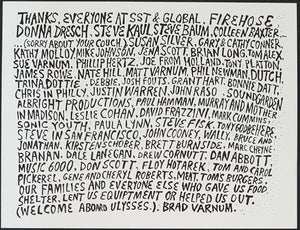 THANKS, EVERYONE AT SST & GLOBAL. FIREHOSE.
DONNA DRESCH, STEVE KAUL, STEVE BAUM, COLLEEN BAXTER...
..(SORRY ABOUT YOUR COUCH.) SUSAN SILVER, GARY & CATHY CONNER.
KATHY MOLLOY, MIKE JOHNSON, JENA SCOTT, BRIAN LONG, TOM, ALEX,
SUE VARNUM, PHILLIP HERTZ, JOE FROM HOLLAND, TONY PLATTON,
JAMES ROWE, NATE HILL, MATT VARNUM, PHIL NEWMAN, DUTCH,
TRINA DOTTIE, DEBBIE, JOSH FOUTS, GRANT HART, BONNIE DATT,
CHRIS IN PHILLY, JUSTIN WARREN, JOHN RASO, SOUNDGARDEN
ALBRIGHT PRODUCTIONS, PAUL HAMMAN, MURRAY AND MOTHER
IN MADISON, LESLIE COHAN, DAVID FRAZZINI, MARK CUMMINS,
SONIC YOUTH, PAULA LYNN, STEVE FISK, TONY GODBEHERE,
STEVE IN SAN FRANCISCO, JOHN COONEY, WALLY, BRUCE AND
JONATHAN, KIRSTEN SCHORER, BRETT BURNSIDE, MARC CHEYNE
BRANAN, DALE LANEGAN, DREW CORNUTT, DAN ABBOTT,
MUSIC 6000, DON SCOTT, FLOY HOTAREK, TOM AND CAROL
PICKEREL, GENE AND CHERYL ROBERTS, MEAT, TOMS BURGERS,
OUR FAMILIES AND EVERYONE ELSE WHO GAVE US FOOD,
SHELTER, LENT US EQUIPTMENT OR HELPED US OUT.
(WELCOME ABOARD ULYSSES.) BRAD VARNUM.